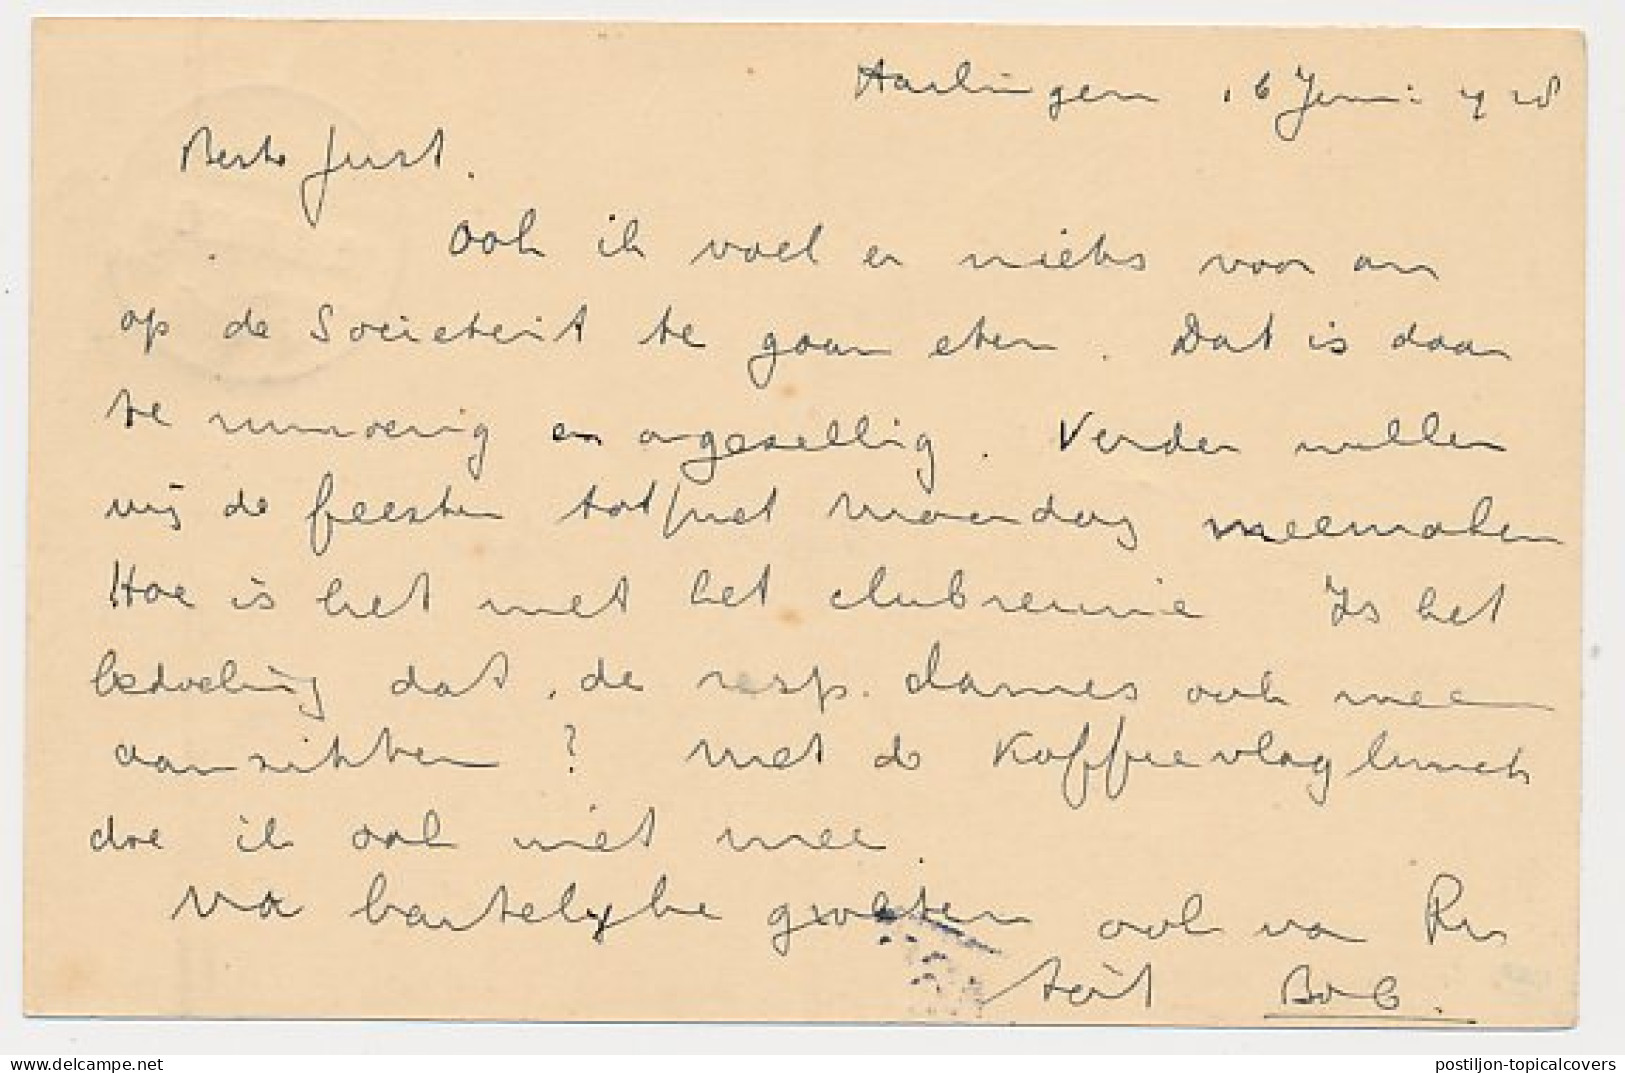 Harlingen 16 Juni 1928
Beste Just.
Ook ik voel er niets voor om
op de Societeit te gaan eten. Dat is daar
te rumoerig en ongezellig. Verder willen
wij de feesten tot met Maandag meemaken
Hoe is het met het clubreunie Is het
bedoeling dat de resp. dames ook mee
aanzitten? Met de Koffievlaglunch
doe ik ook niet mee.
Va hartelijke groeten ook va
Bob.
postiljon-topicalcovers